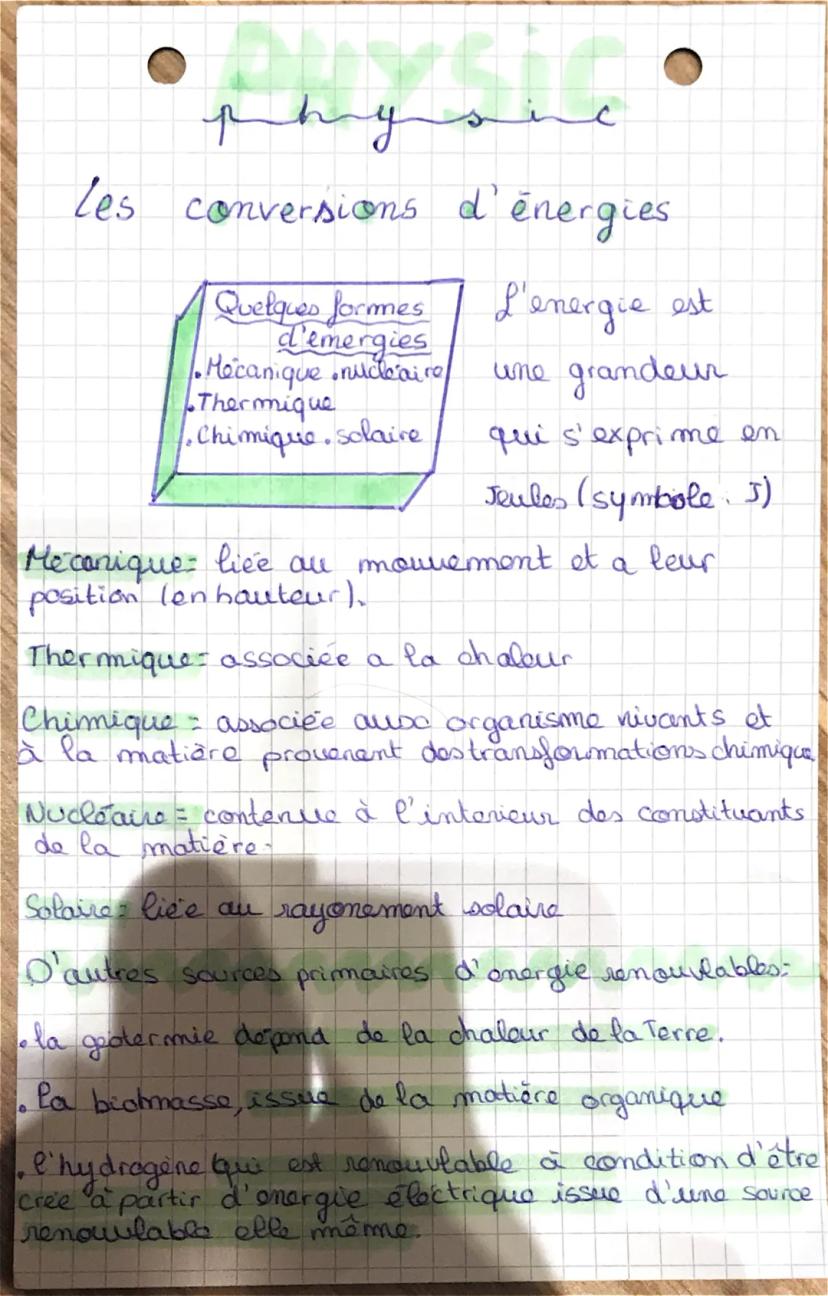 PHYSIC
physic
Les conversions d'énergies
Quelques formes
d'émergies
.Mécanique .nucléaire
.Thermique
.Chimique .solaire
L'energie est
une grandeur
qui s'exprime en
Jeules (symbole : J)
Mécanique = liée au mouvement et a leur
position (en hauteur).
Thermique = associée a la chaleur
Chimique = associée aux organisme vivants et
à la matière provenent des transformations chimique
Nucléaire = contenue à l'interieur des constituants
de la matière.
Solaire = liée au rayonement solaire
D'autres sources primaires d'énergie renouvlables :
.la géotermie dépend de la chaleur de la Terre.
.la biotmasse, issue de la matière organique
.l'hydrogène (qui est renouvlable à condition d'être
crée à partir d'énergie électrique issue d'une source
renouvlable elle même.